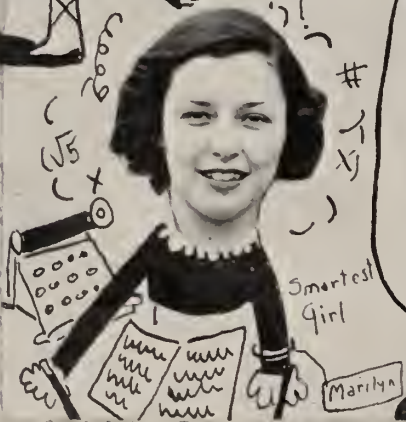 #
√5
x
Smartest
Girl
Marilyn